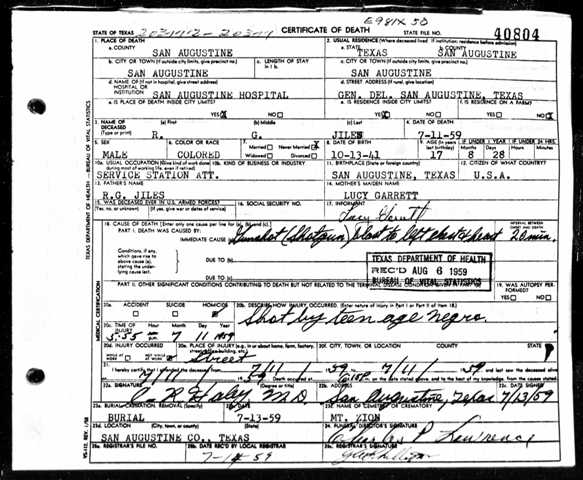 E981X 50
STATE OF TEXAS CERTIFICATE OF DEATH STATE FILE NO. 40804
1. PLACE OF DEATH 2. USUAL RESIDENCE (Where deceased lived. If institution: residence before admission)
a. COUNTY SAN AUGUSTINE a. STATE TEXAS b. COUNTY SAN AUGUSTINE
b. CITY OR TOWN (If outside city limits, give precinct no.) c. LENGTH OF STAY in 1 b. c. CITY OR TOWN (If outside city limits, give precinct no.)
SAN AUGUSTINE SAN AUGUSTINE
d. NAME OF (If not in hospital, give street address) HOSPITAL OR INSTITUTION SAN AUGUSTINE HOSPITAL d. STREET ADDRESS (If rural, give location) GEN. DEL. SAN AUGUSTINE, TEXAS
e. IS PLACE OF DEATH INSIDE CITY LIMITS? YES NO e. IS RESIDENCE INSIDE CITY LIMITS? YES NO f. IS RESIDENCE ON A FARM? YES NO
3. NAME OF DECEASED (Type or print) (a) First (b) Middle (c) Last 4. DATE OF DEATH
R. G. JILES 7-11-59
5. SEX 6. COLOR OR RACE 7. Married Never Married Widowed Divorced 8. DATE OF BIRTH 9. AGE (In years last birthday) IF UNDER 1 YEAR Months Days IF UNDER 24 HRS. Hours Min.
MALE COLORED 10-13-41 17 8 28
10a. USUAL OCCUPATION (Give kind of work done during most of working life, even if retired) 10b. KIND OF BUSINESS OR INDUSTRY 11. BIRTHPLACE (State or foreign country) 12. CITIZEN OF WHAT COUNTRY?
SERVICE STATION ATT. SAN AUGUSTINE, TEXAS U.S.A.
13. FATHER'S NAME 14. MOTHER'S MAIDEN NAME
R.G. JILES LUCY GARRETT
15. WAS DECEASED EVER IN U.S. ARMED FORCES? (Yes, no, or unknown) (If yes, give war or dates of service) 16. SOCIAL SECURITY NO. 17. INFORMANT
18. CAUSE OF DEATH [Enter only one cause per line for (a), (b), and (c).] INTERVAL BETWEEN ONSET AND DEATH
PART I. DEATH WAS CAUSED BY:
IMMEDIATE CAUSE (a) Gunshot (shotgun) blast to left chest & heart 20 min.
Conditions, if any, which gave rise to above cause (a), stating the underlying cause last. DUE TO (b)
DUE TO (c)
TEXAS DEPARTMENT OF HEALTH
REC'D AUG 6 1959
BUREAU OF VITAL STATISTICS
PART II. OTHER SIGNIFICANT CONDITIONS CONTRIBUTING TO DEATH BUT NOT RELATED TO THE TERMINAL DISEASE 19. WAS AUTOPSY PERFORMED? YES NO
20a. ACCIDENT SUICIDE HOMICIDE 20b. DESCRIBE HOW INJURY OCCURRED. (Enter nature of injury in Part I or Part II of item 18.)
Shot by teen age negro.
20c. TIME OF INJURY Hour Month Day Year
5:55 pm 7 11 1959
20d. INJURY OCCURRED WHILE AT WORK NOT WHILE AT WORK 20e. PLACE OF INJURY (e.g., in or about home, farm, factory, street, office building, etc.) Street 20f. CITY, TOWN, OR LOCATION COUNTY STATE
21. I hereby certify that I attended the deceased from 7/11 59 to 7/11 59
22a. SIGNATURE (Degree or title) 22b. ADDRESS 22c. DATE SIGNED
C. R. Haley M.D. San Augustine, Texas 7/13/59
23a. BURIAL, CREMATION, REMOVAL (Specify) 23b. DATE 23c. NAME OF CEMETERY OR CREMATORY
BURIAL 7-13-59 MT. ZION
23d. LOCATION (City, town, or county) (State) 24. FUNERAL DIRECTOR'S SIGNATURE
SAN AUGUSTINE CO., TEXAS Charles P. Lawrence
25a. REGISTRAR'S FILE NO. 25b. DATE REC'D BY LOCAL REGISTRAR 25c. REGISTRAR'S SIGNATURE
TEXAS DEPARTMENT OF HEALTH — BUREAU OF VITAL STATISTICS
MEDICAL CERTIFICATION